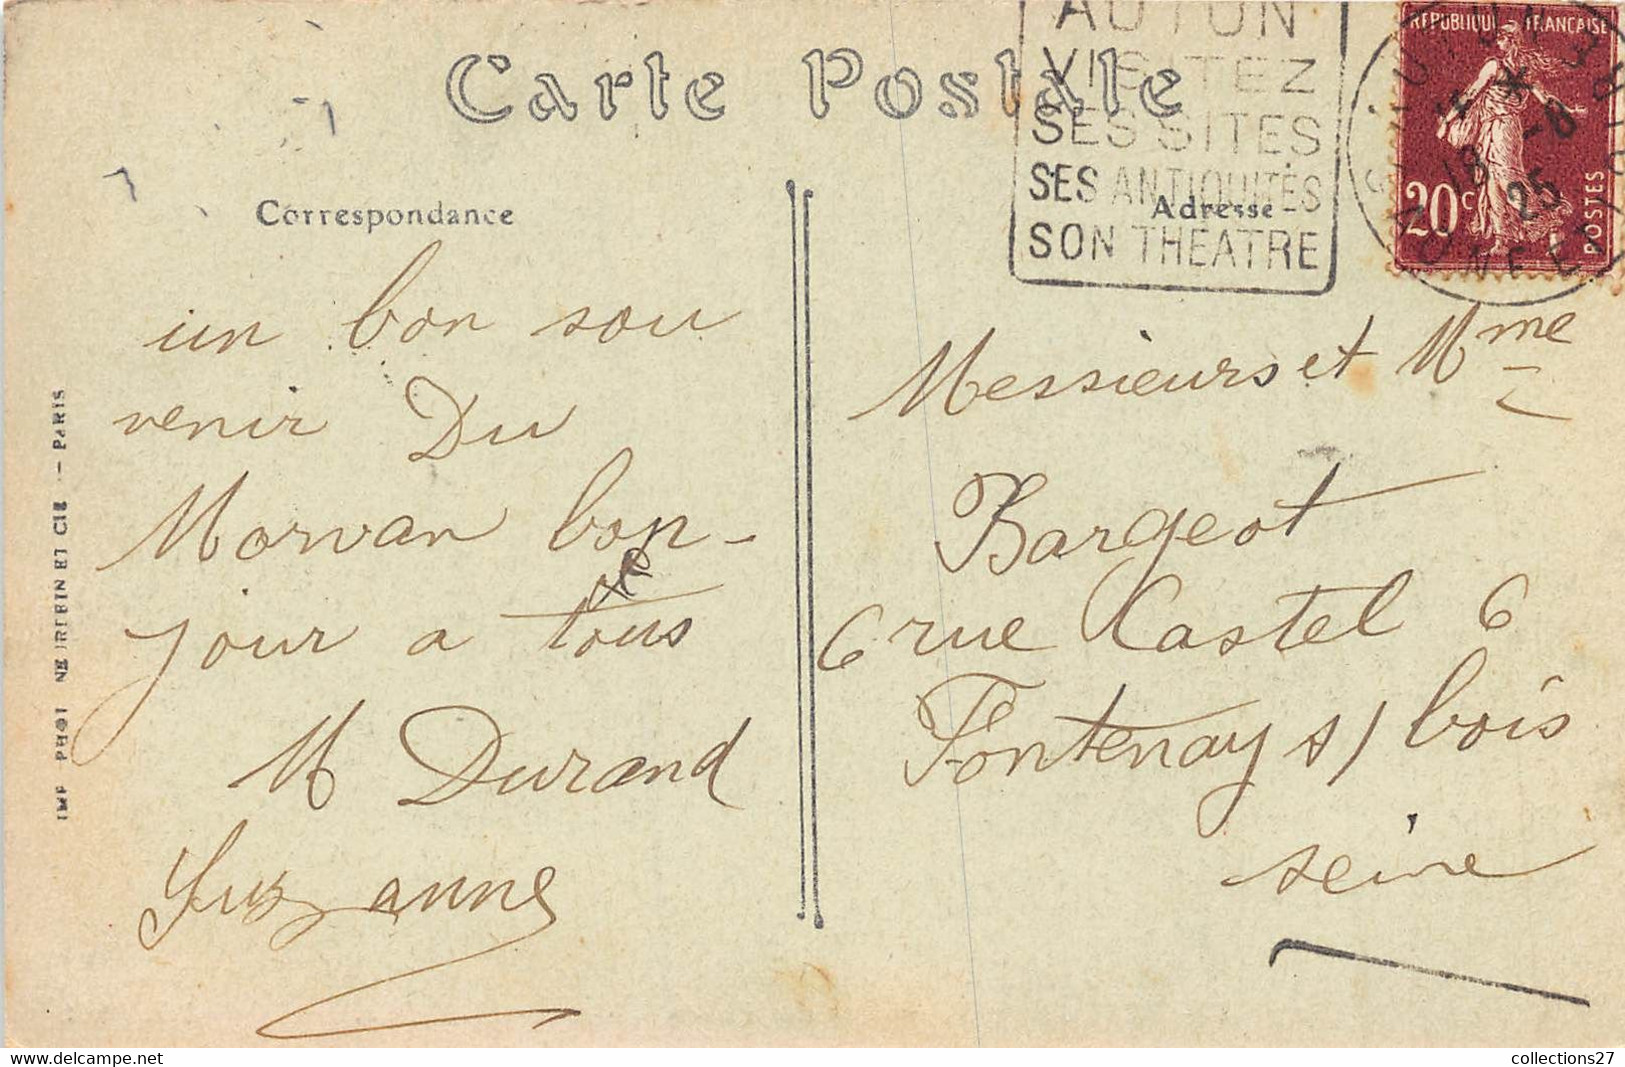 Carte Postale
AUTUN
VISITEZ
SES SITES
SES ANTIQUITÉS
SON THEATRE
REPUBLIQUE FRANÇAISE
20c
POSTES
AUTUN
18 -8
25
SAONE ET L
Correspondance
Adresse
un bon sou
venir Du
Morvan bon-
jour a tous
M Durand
Suzanne
Messieurs et Mme
Bargeot
6 rue Castel 6
Fontenay s/ bois
seine
IMP PHOT NEURDEIN ET CIE — PARIS
collections27